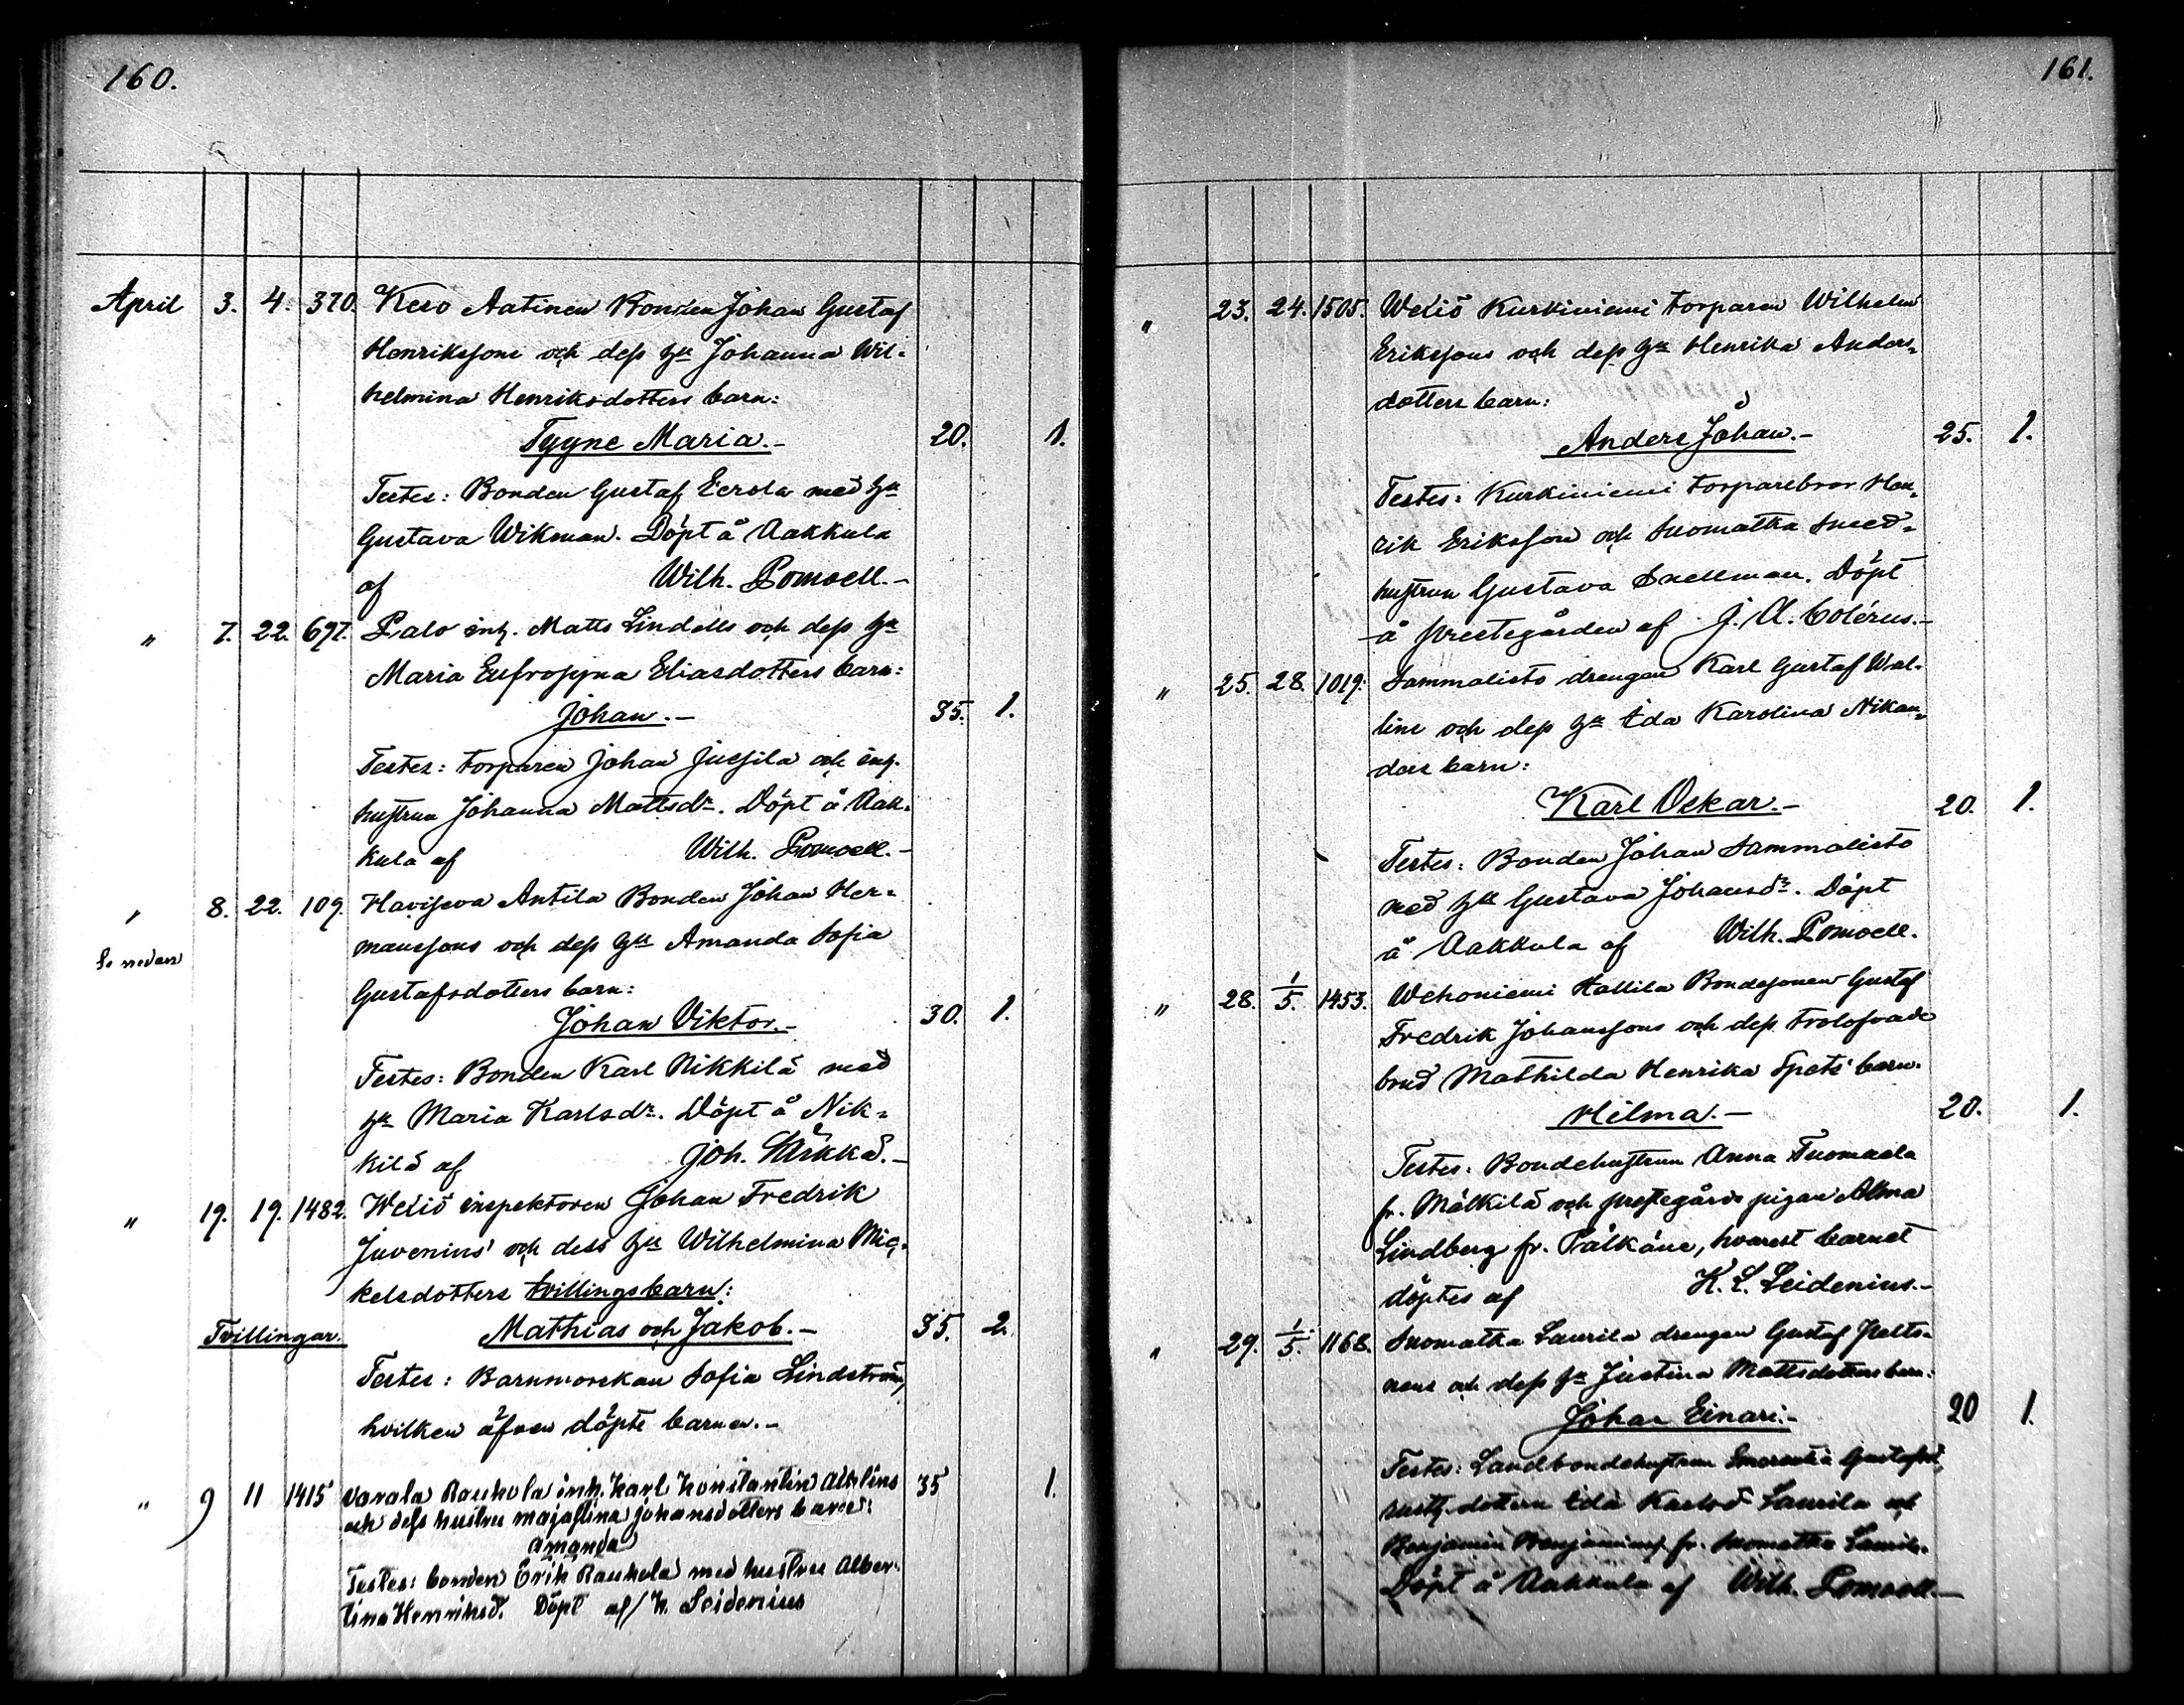 160.
April 3. 4. 370. Kero Aatinen Bonden Johan Gustaf
Henrikssons och dess hu Johanna Wil-
helmina Henriksdotters barn:
Tyyne Maria.- 20. 1.
Testes: Bonden Gustaf Eerola med hu
Gustava Wikman. Döpt å Aakkula
af Wilh. Pomoell.-
" 7. 22. 697. Palo inh. Matts Lindells och dess hu
Maria Eufrosyna Eliasdotters barn:
Johan.- 35. 1.
Testes: torparen Johan Jussila och inh.
hustrun Johanna Mattsdr. Döpt å Aak-
kula af Wilh. Pomoell.-
" 8. 22. 109. Haviseva Antila Bonden Johan Her-
Se nedan manssons och dess hu Amanda Sofia
Gustafsdotters barn:
Johan Viktor.- 30. 1.
Testes: Bonden Karl Nikkilä med
hu Maria Karlsdr. Döpt å Nik-
kilä af Joh.
" 19. 19. 1482. Weliö inspektoren Johan Fredrik
Juvenius' och dess hu Wilhelmina Mic-
kelsdotters tvillingsbarn:
Tvillingar. Mathias och Jakob.- 35. 2.
Testes: Barnmorskan Sofia Lindström,
hvilken äfven döpte barnen.-
" 9 11 1415 Varala Rauhola inh. Karl Konstantin
och dess hustru Majastina Johansdotters barn: 35 1.
Amanda
Testes: bonden Erik Rauhola med hustru Alber-
tina Henriksd. Döpt af K. Leidenius
161.
" 23. 24. 1505. Weliö Kurkiniemi torparen Wilhelm
Erikssons och dess hu Henrika Anders-
dotters barn:
Anders Johan.- 25. 1.
Testes: Kurkiniemi torparebror Hen-
rik Eriksson och Suomatka smed-
hustrun Gustava Snellman. Döpt
å prestegården af J. A. Colérus.-
" 25. 28. 1019. Sammalisto drengen Karl Gustaf Wal-
lins och dess hu Ida Karolina Nikan-
ders barn:
Karl Oskar.- 20. 1.
Testes: Bonden Johan Sammalisto
med hu Gustava Johansdr. Döpt
å Aakkula af Wilh. Pomoell.
" 28. 1/5. 1453. Wehoniemi Hallila Bondesonen Gustaf
Fredrik Johanssons och dess trolofvade
brud Mathilda Henrika Spets' barn.
Hilma.- 20. 1.
Testes: Bondehustrun Anna Tuomaala
fr. Mälkilä och prestegårds pigan Alma
Lindberg fr. Pälkäne, hvarest barnet
döptes af K. L. Leidenius.-
" 29. 1/5. 1168. Suomatka Laurila drengen Gustaf Pelto-
nens och dess hu Justina Mattsdotters barn:
Johan Einari.- 20 1.
Testes: Landbondehustrun Gustafsd,
dottern Ida Karlsd Laurila och
Benjamin Benjaminss. fr. Suomatka
Döpt å Aakkula af Wilh. Pomoell.-